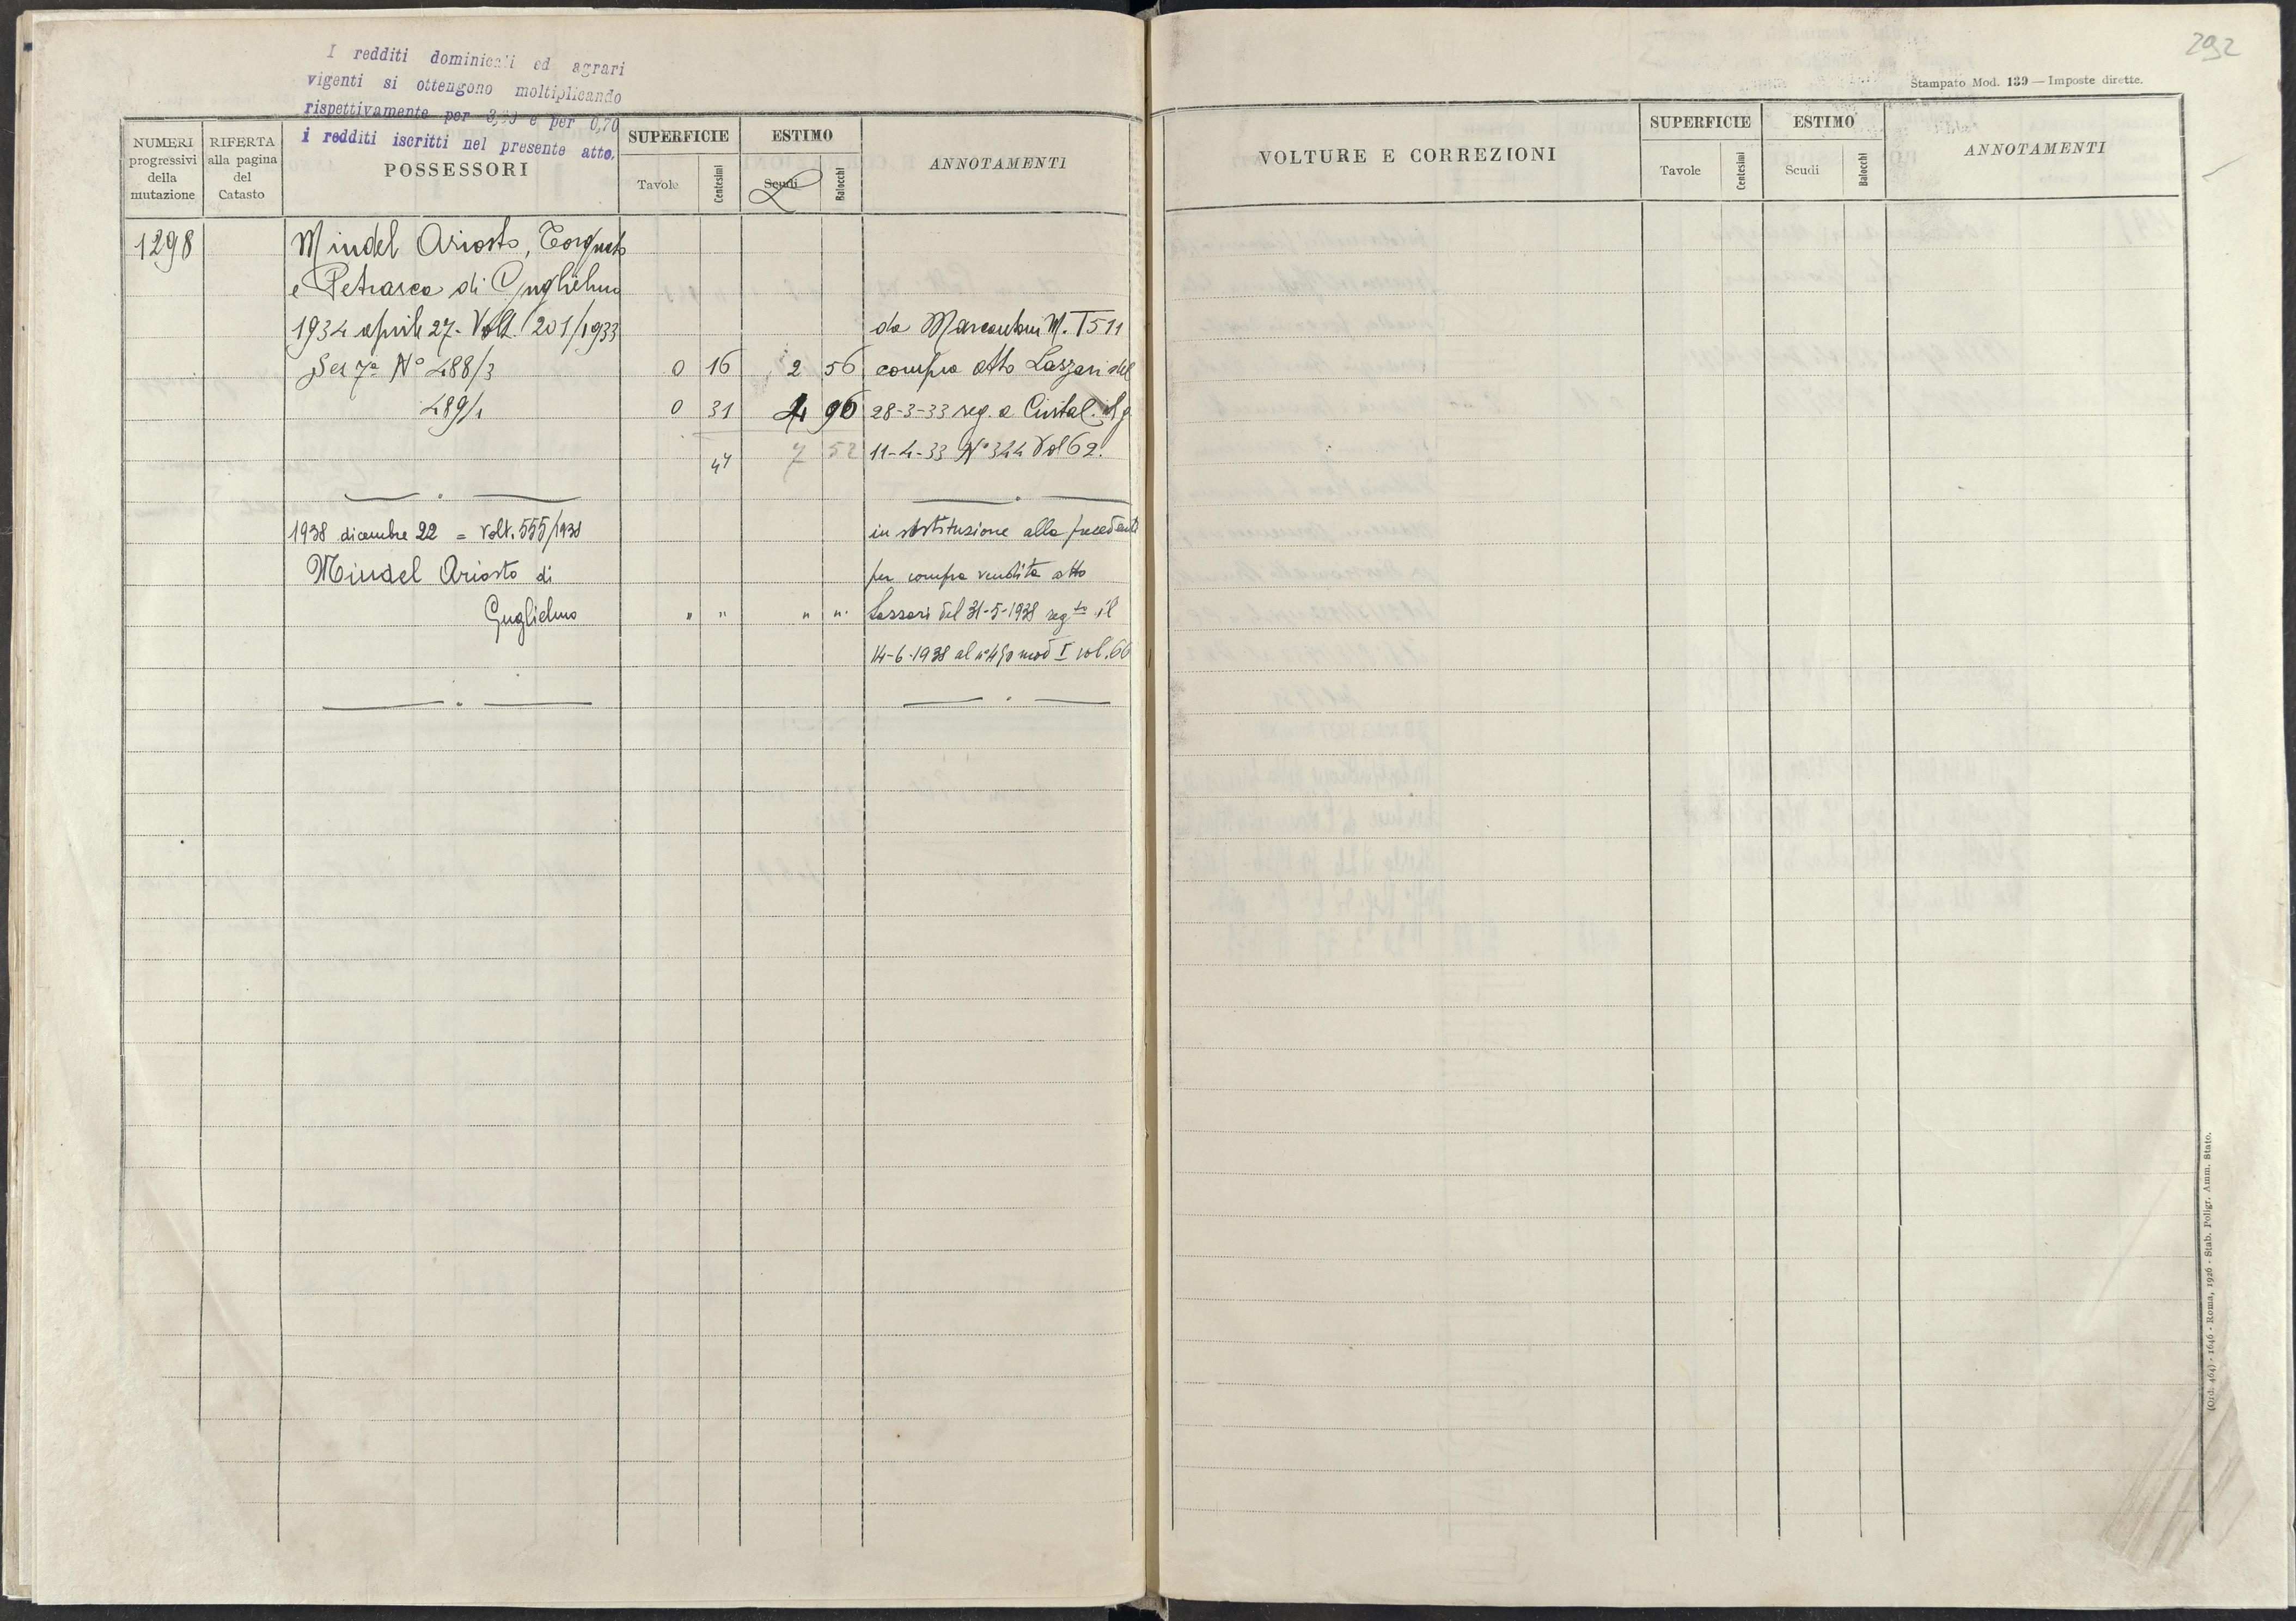 I redditi dominicali ed agrari
vigenti si ottengono moltiplicando
rispettivamente per e per 0,70
i redditi iscritti nel presente atto.
NUMERI progressivi della mutazione
RIFERTA alla pagina del Catasto
POSSESSORI
SUPERFICIE
Tavole Centesimi
ESTIMO
Scudi L Baiocchi
ANNOTAMENTI
1298 Mindel Ariosto, Torquato
e Petrarca di Guglielmo
1934 aprile 27. Volt. 201/1933 da Marcantoni M. T 511
Sez 7a N° 488/3 0 16 2 56 compra atto Lazzari del
489/1 0 31 4 96 28-3-33 reg. a
47 7 52 11-4-33 N° 344 Vol 62.
1938 dicembre 22 = Volt. 555/1938 in sostituzione alla precedente
Mindel Ariosto di per compra vendita atto
Guglielmo " " " " Lazzari del 31-5-1938 regto il
14-6-1938 al n° mod I vol. 66
292
Stampato Mod. 139 — Imposte dirette.
VOLTURE E CORREZIONI
SUPERFICIE
Tavole Centesimi
ESTIMO
Scudi Baiocchi
ANNOTAMENTI
(Ord. 464) - 1646 - Roma, 1926 - Stab. Poligr. Amm. Stato.